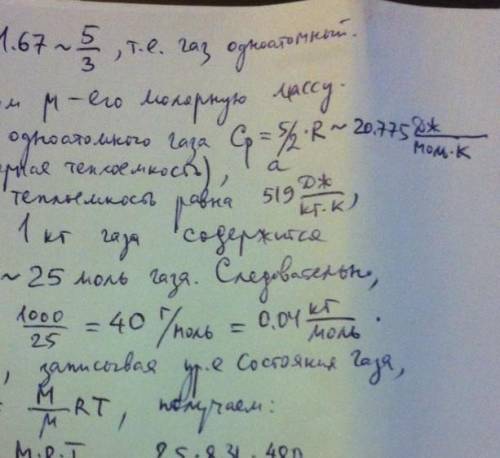 1.67 ~ 5/3, т.е. газ одноатомный.
μ – его молярную массу.
одноатомного газа Cp = 5/2 · R ~ 20.775 Дж/моль·К
теплоемкость), а
теплоемкость равна 519 Дж/кг·К,
1 кг газа содержится
~ 25 моль газа. Следовательно,
1000/25 = 40 г/моль = 0.04 кг/моль.
, записывая ур.е состояния газа,
M/μ RT, получаем:
M·R·T